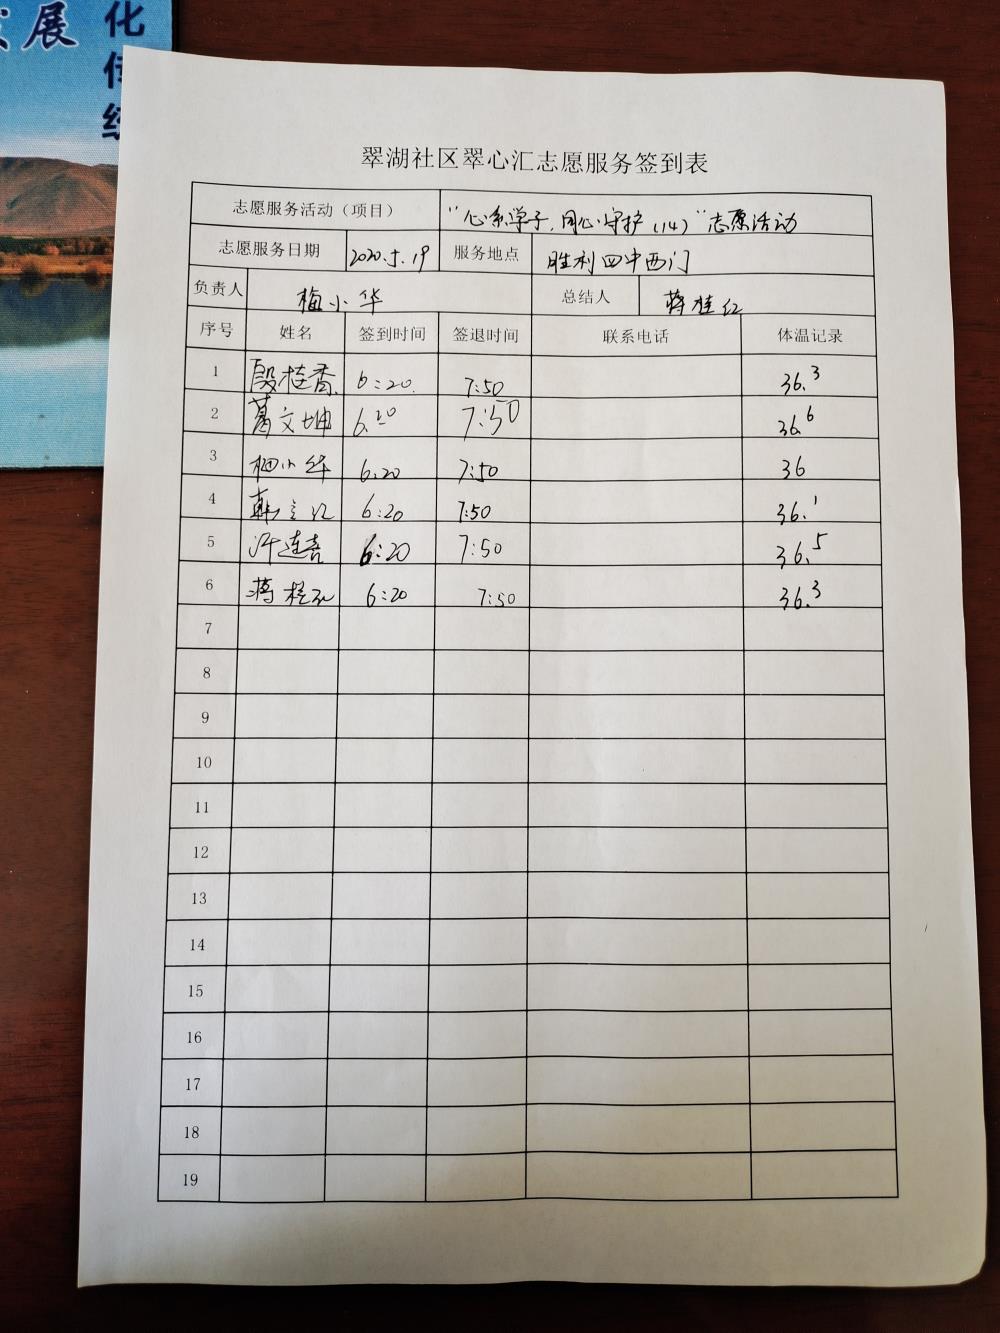 发展
化
传
统
翠湖社区翠心汇志愿服务签到表
志愿服务活动（项目） “心系学子，同心守护（14）”志愿活动
志愿服务日期 2020.5.19 服务地点 胜利四中西门
负责人 梅小华 总结人 蒋桂红
序号 姓名 签到时间 签退时间 联系电话 体温记录
1 段桂香 6:20 7:50 36.3
2 葛文坤 6.20 7:50 36.6
3 梅小华 6.20 7:50 36
4 韩立红 6:20 7:50 36.1
5 许连喜 6:20 7:50 36.5
6 蒋桂红 6:20 7:50 36.3
7
8
9
10
11
12
13
14
15
16
17
18
19